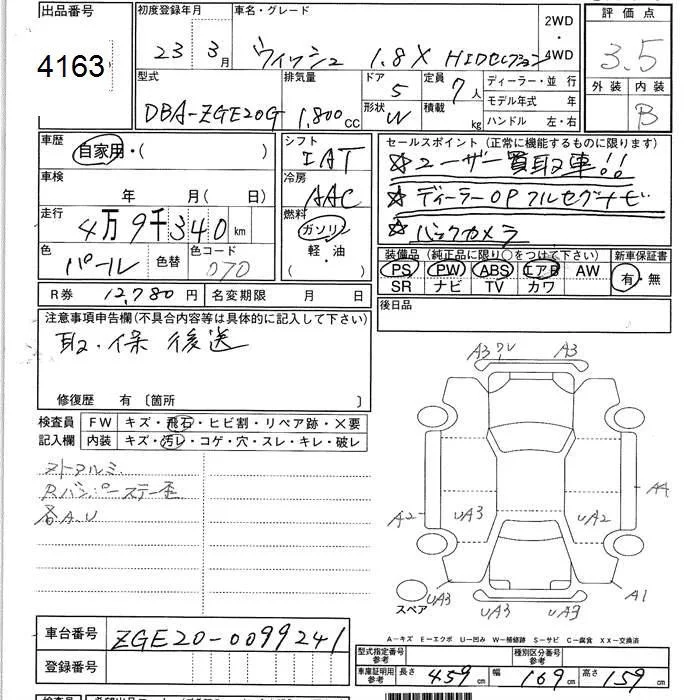 出品番号
4163
初度登録年月
23 3月
車名・グレード
ウィッシュ 1.8X HIDセレクション
2WD
4WD
評価点
3.5
外装 内装
B
型式
DBA-ZGE20G
排気量
1,800cc
ドア
5
形状
W
定員
7人
積載
kg
ディーラー・並行
モデル年式 年
ハンドル 左・右
車歴
自家用・( )
車検
年 月( 日)
走行
4万9千340km
色
パール
色替
色コード
070
シフト
IAT
冷房
AAC
燃料
ガソリン
軽・油
( )
セールスポイント (正常に機能するものに限ります)
☆ユーザー買取車!!
☆ディーラーOPフルセグナビ
☆バックカメラ
装備品(純正品に限り○をつけて下さい)
PS PW ABS エアB AW
SR ナビ TV カワ
新車保証書
有・無
R券 12,780円
名変期限 月 日
後日品
注意事項申告欄(不具合内容等は具体的に記入して下さい)
取・保 後送
修復歴 有 〔箇所 〕
検査員
記入欄
FW キズ・飛石・ヒビ割・リペア跡・×要
内装 キズ・汚レ・コゲ・穴・スレ・キレ・破レ
ストアルミ
Rバンパーステー歪
各A.U
A3 ワレ A3
A2 UA3 UA2 A4
UA3 UA3 UA3 A1
スペア
A−キズ E−エクボ U−凹み W−補修跡 S−サビ C−腐食 XX−交換済
車台番号
ZGE20-0099241
登録番号
型式指定番号
参考
種別区分番号
参考
車庫証明用
参考
長さ 459cm 幅 169cm 高さ 159cm
検査員